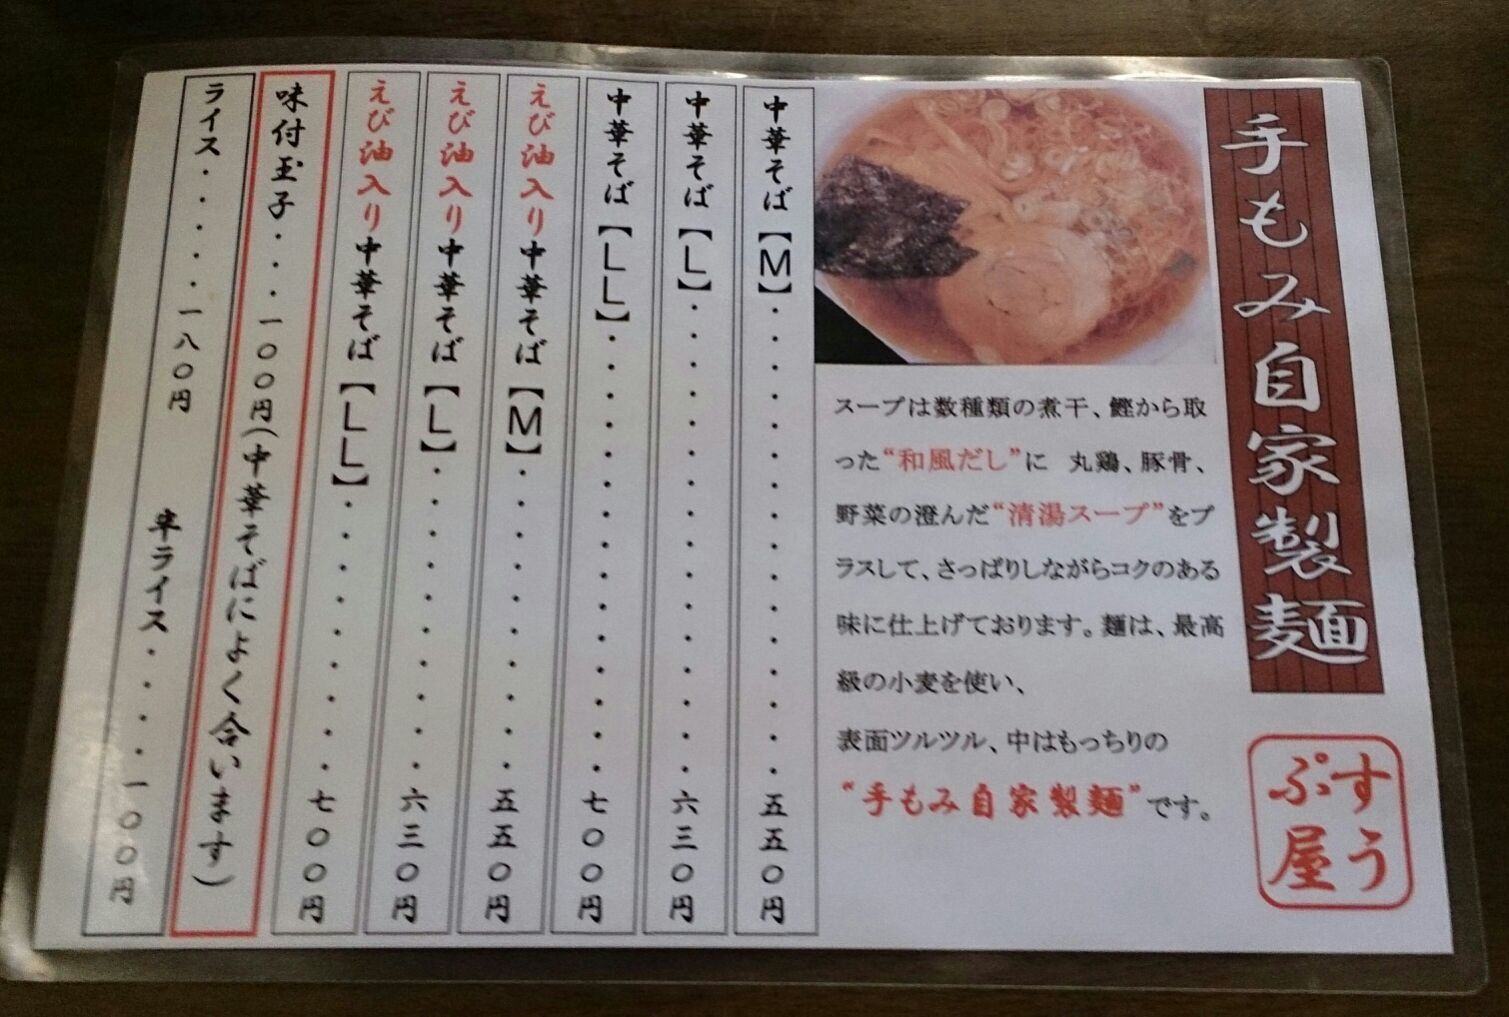 手もみ自家製麺
すうぷ屋
スープは数種類の煮干、鰹から取
った“和風だし”に 丸鶏、豚骨、
野菜の澄んだ“清湯スープ”をプ
ラスして、さっぱりしながらコクのある
味に仕上げております。麺は、最高
級の小麦を使い、
表面ツルツル、中はもっちりの
“手もみ自家製麺”です。
中華そば【M】・・・・・・・・・・・・・・・・五五〇円
中華そば【L】・・・・・・・・・・・・・・・・六三〇円
中華そば【LL】・・・・・・・・・・・・・・・七〇〇円
えび油入り中華そば【M】・・・・・・・・・・五五〇円
えび油入り中華そば【L】・・・・・・・・・・六三〇円
えび油入り中華そば【LL】・・・・・・・・・七〇〇円
味付玉子・・・一〇〇円(中華そばによく合います)
ライス・・・・・一八〇円 半ライス・・・・一〇〇円